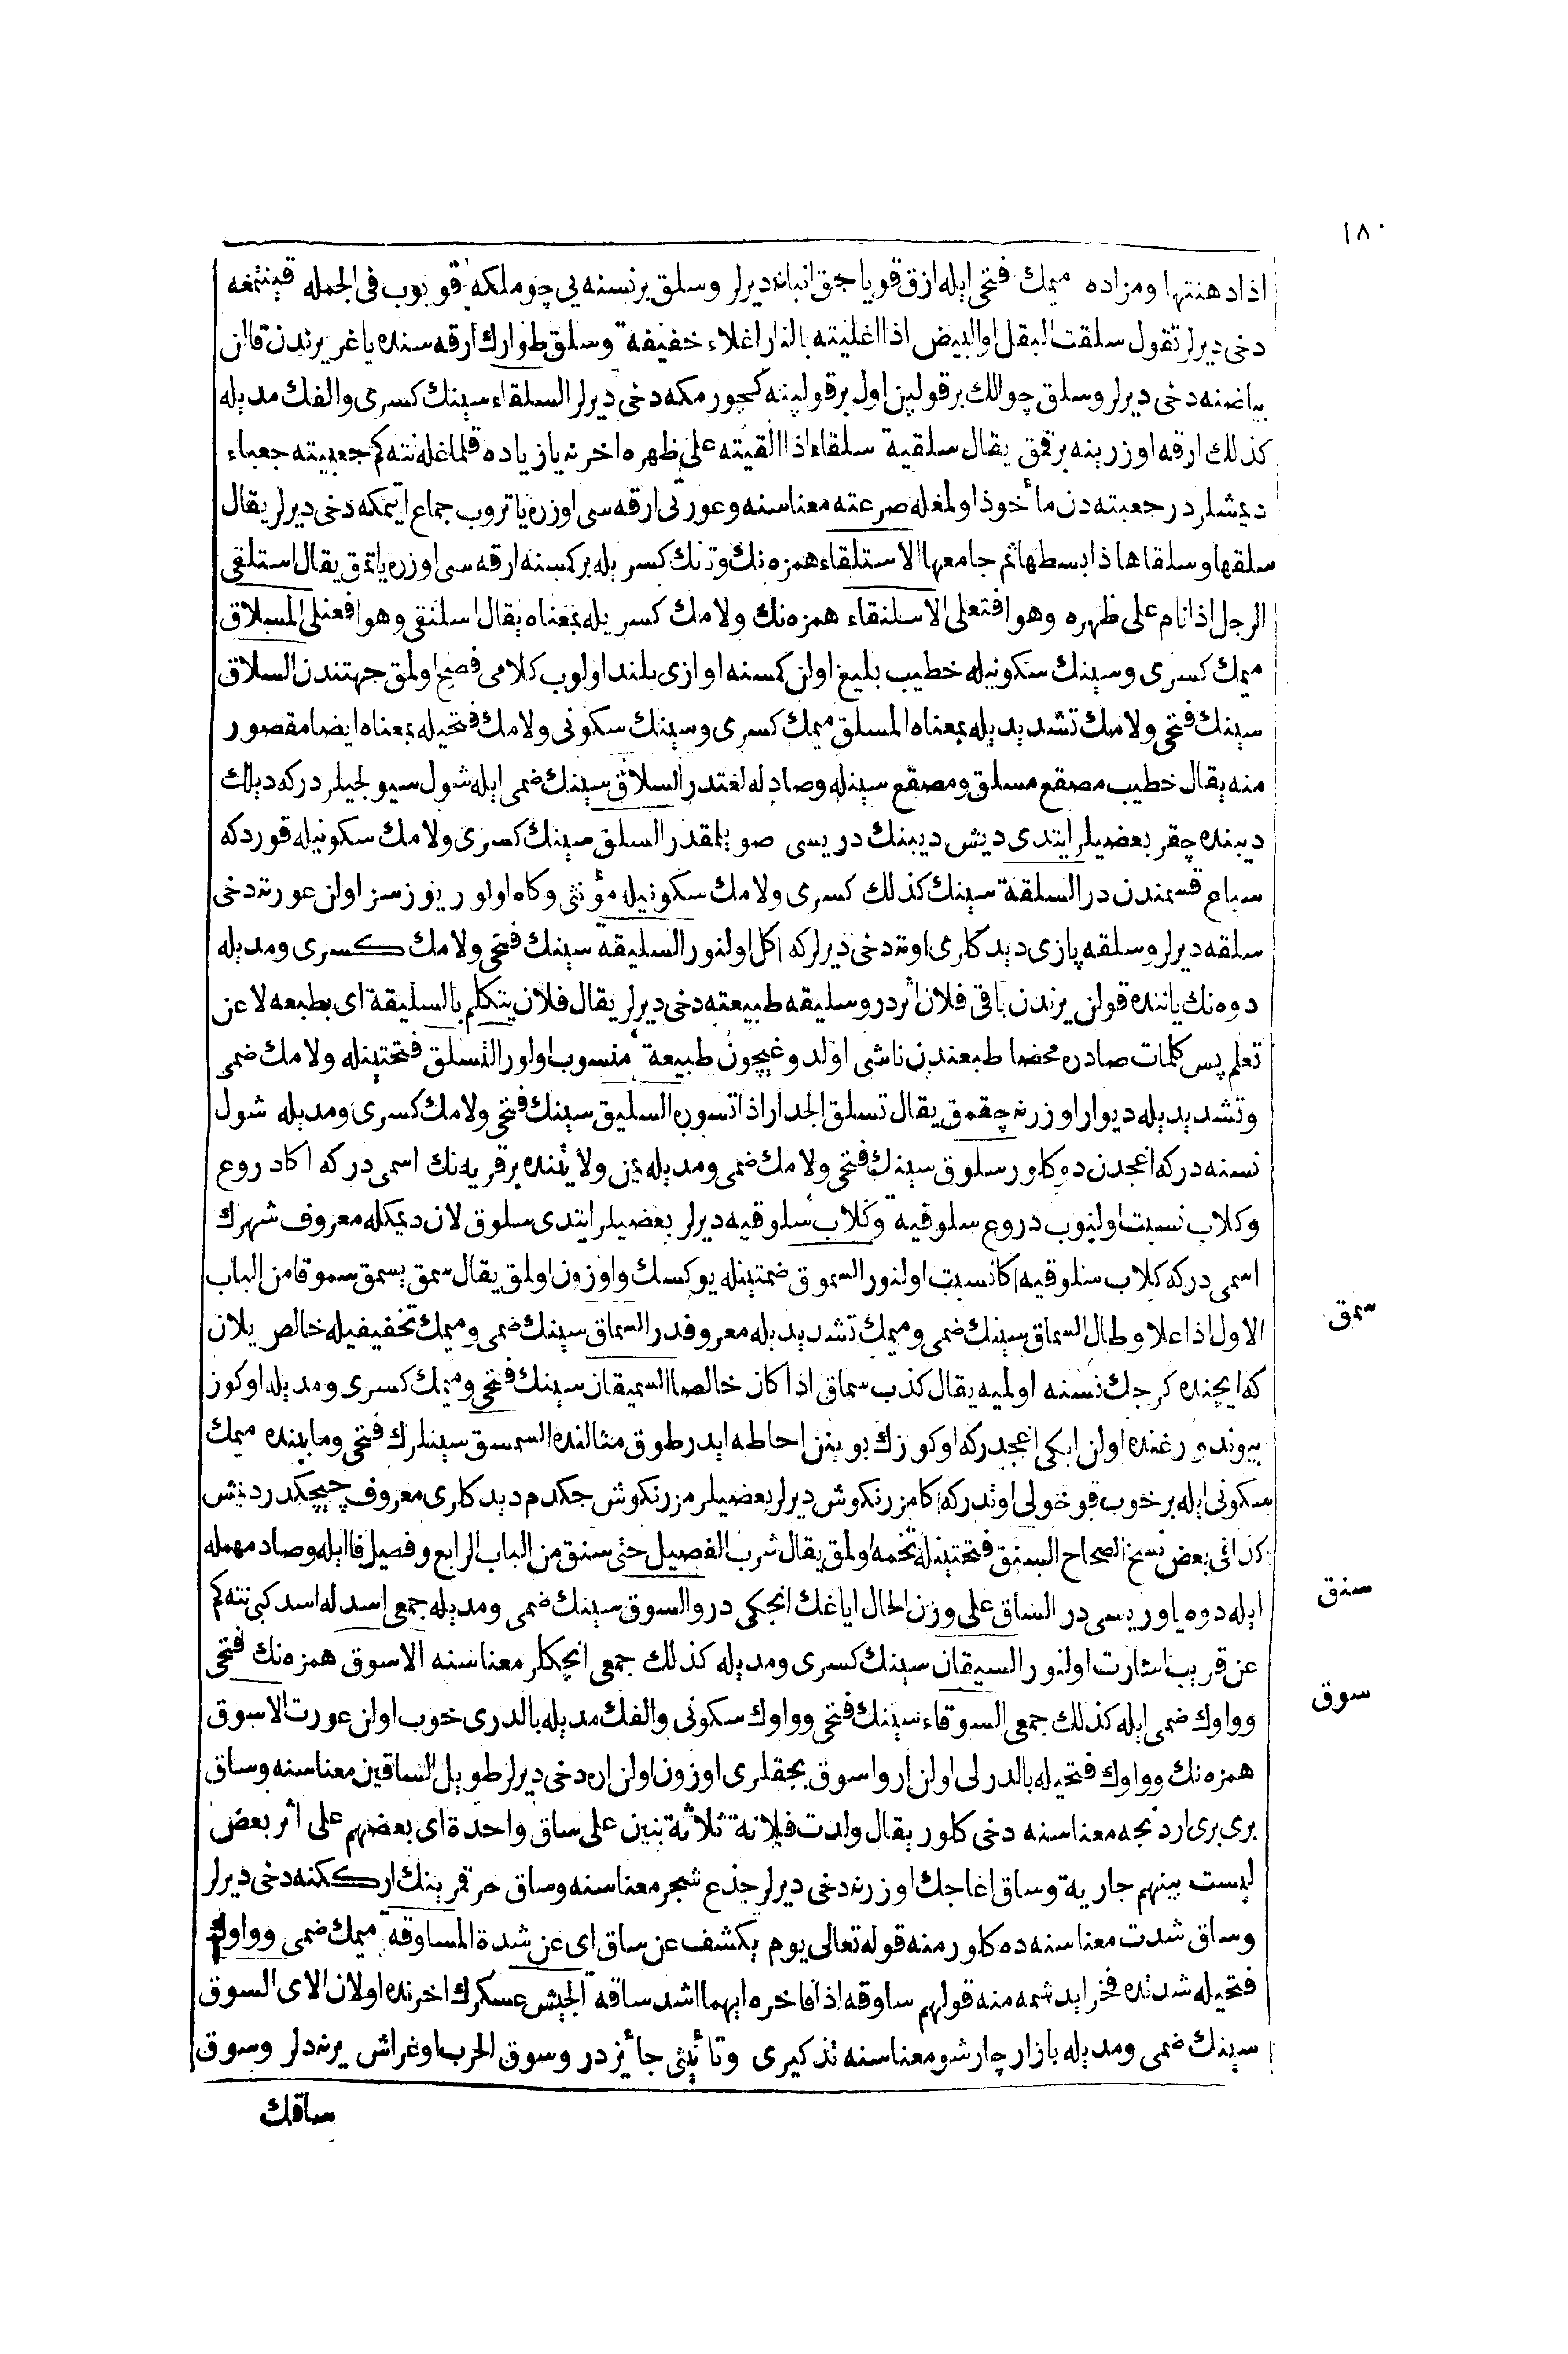 ١٨٠
اذا دهنتها ومزاده ميمك فتحى ايله ازق قوياجق انبانه ديرلر وسلق برنسنه يى چوملكه قويوب فى الجمله قينتمغه
دخى ديرلر تقول سلقت البقل او البيض اذا اغليته بالنار اغلاء خفيفة وسلق طوارك ارقه سنده ياغر يرندن قالن
بياضنه دخى ديرلر وسلق چوالك برقولپن اول برقولپنه كچورمكه دخى ديرلر السلقاء سينك كسرى والفك مديله
كذلك ارقه اوزرينه برقمق يقال سلقية سلقاء اذا القيته على ظهره اخرنه يازياده قلمغله نته كم جعبيته جعباء
ديمشلردر جعبته دن مأخوذ اولمغله صرعته معناسنه وعورتى ارقه سى اوزره ياتروب جماع ايتمكه دخى ديرلر يقال
سلقها وسلقاها اذا بسطها ثم جامعها الاستلقاء همزه نك وتنك كسريله بركسنه ارقه سى اوزره ياتمق يقال استلقى
الرجل اذا نام على ظهره وهو افتعلى الاسلنقاء همزه نك ولامك كسريله بمعناه يقال اسلنقى وهو افعنلى المسلاق
ميمك كسرى وسينك سكونيله خطيب بليغ اولن كمسنه اوازى بلند اولوب كلامى فصيح اولمق جهتندن السلاق
سينك فتحى ولامك تشديديله بمعناه المسلق ميمك كسرى وسينك سكونى ولامك فتحيله بمعناه ايضا مقصور
منه يقال خطيب مصقع مسلق ومصقع سينله وصادله لغتدر السلاق سينك ضمى ايله شول سيولجيلردركه ديلك
ديبنده چقر بعضيلر ايتدى ديش ديبنك دريسى صويلمقدر السلق سينك كسرى ولامك سكونيله قورد كه
سباع قسمندن در السلقة سينك كذلك كسرى ولامك سكونيله مؤنثى وكاه اولور يوزسز اولن عورته دخى
سلقه ديرلر وسلقه پازى ديدكلرى اوته دخى ديرلركه اكل اولنور السليقه سينك فتحى ولامك كسرى ومديله
دوه نك ياننده قولن يرندن باقى قلان اثردر وسليقه طبيعته دخى ديرلر يقال فلان يتكلم بالسليقة اى بطبعه لا عن
تعلم پس كلمات صادره محضا طبعندن ناشى اولدوغيچون طبيعة منسوب اولور التسلق فتحتينله ولامك ضمى
وتشديديله ديوار اوزرنه چقمق يقال تسلق الجدار اذا تسوره السليق سينك فتحى ولامك كسرى ومديله شول
نسنه دركه اغجدن دوكلور سلوق سينك فتحى ولامك ضمى ومديله يمن ولايتنده برقريه نك اسمى دركه اكا دروع
وكلاب نسبت اولنوب دروع سلوقية وكلاب سلوقيه ديرلر بعضيلر ايتدى سلوق لان ديمكله معروف شهرك
اسمى دركه كلاب سلوقيه اكا نسبت اولنور السموق ضمتينله يوكسك واوزون اولمق يقال سمق يسمق سموقا من الباب
سمق
الاول اذا علا وطال السماق سينك ضمى وميمك تشديديله معروفدر السماق سينك ضمى وميمك تخفيفيله خالص يلان
كه ايچنده كرجك نسنه اولميه يقال كذب سماق اذا كان خالصا السميقان سينك فتحى وميمك كسرى ومديله اوكوز
بيوندروغنده اولن ايكى اغجدركه اوكوزك بوينن احاطه ايدر طوق مثالنده السمسق سينلرك فتحى ومابينده ميمك
سكونى ايله برخوب قوخولى اوتدركه اكا مزرنكوش ديرلر بعضيلر مزرنكوش جكدم ديدكلرى معروف چيچكدر ديمش
كذا فى بعض نسخ الصحاح السنق فتحتينله تخمه اولمق يقال شرب الفصيل حتى سنق من الباب الرابع وفصيل فا ايله وصاد مهمله
سنق
ايله دوه ياوريسى در الساق على وزن الحال اياغك انجكى در والسوق سينك ضمى ومديله جمعى اسد له اسد كبى نته كم
عن قريب اشارت اولنور السيقان سينك كسرى ومديله كذلك جمعى انچكلر معناسنه الاسوق همزه نك فتحى
سوق
وواوك ضمى ايله كذلك جمعى السوقاء سينك فتحى وواوك سكونى والفك مديله بالدرى خوب اولن عورت الاسوق
همزه نك وواوك فتحيله بالدرلى اولن ار واسوق بجقلرى اوزون اولن اره دخى ديرلر طويل الساقين معناسنه وساق
برى برى اردنجه معناسنه دخى كلور يقال ولدت فلانة ثلاثة بنين على ساق واحدة اى بعضهم على اثر بعض
ليست بينهم جارية وساق اغاجك اوزرنه دخى ديرلر جذع شجر معناسنه وساق حر قمرينك ارككنه دخى ديرلر
وساق شدت معناسنه ده كلور منه قوله تعالى يوم يكشف عن ساق اى عن شدة المساوقه ميمك ضمى وواوك
فتحيله شدتده فخر ايدشمه منه قولهم ساوقه اذا فاخره ايهما اشد ساقة الجيش عسكرك اخرنده اولان الاى السوق
سينك ضمى ومديله بازار چارشو معناسنه تذكيرى وتأنيثى جائزدر وسوق الحرب اوغراش يرنه ديرلر وسوق
ساقك